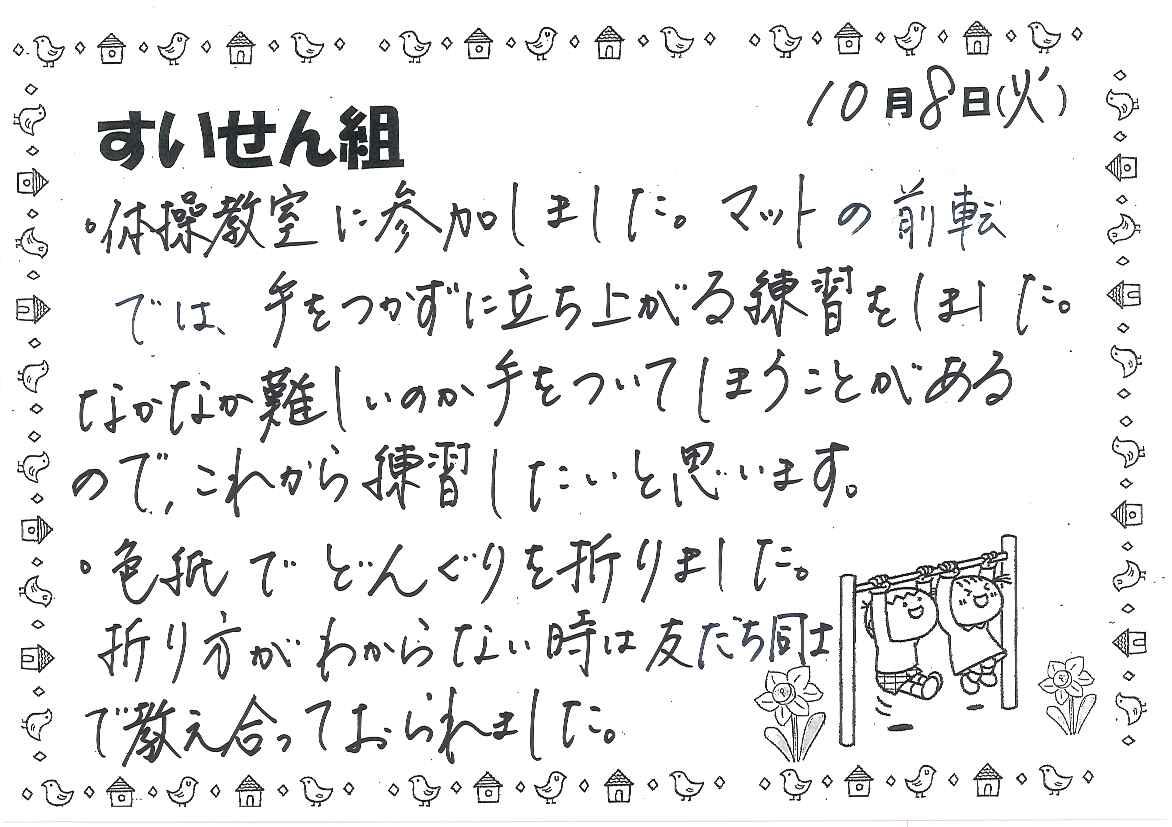 10月8日(火)
すいせん組
・体操教室に参加しました。マットの前転
では、手をつかずに立ち上がる練習をしました。
なかなか難しいのか手をついてしまうことがある
ので、これから練習したいと思います。
・色紙でどんぐりを折りました。
折り方がわからない時は友だち同士
で教え合っておられました。